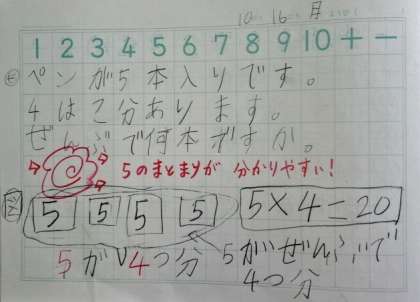 10 16 月
1 2 3 4 5 6 7 8 9 10 + −
ペンが5本入りです。
4は二分あります。
ぜんぶで何本ですか。
5のまとまりが 分かりやすい!
5 5 5 5 5×4=20
5が4つ分 5がぜんぶで
4つ分